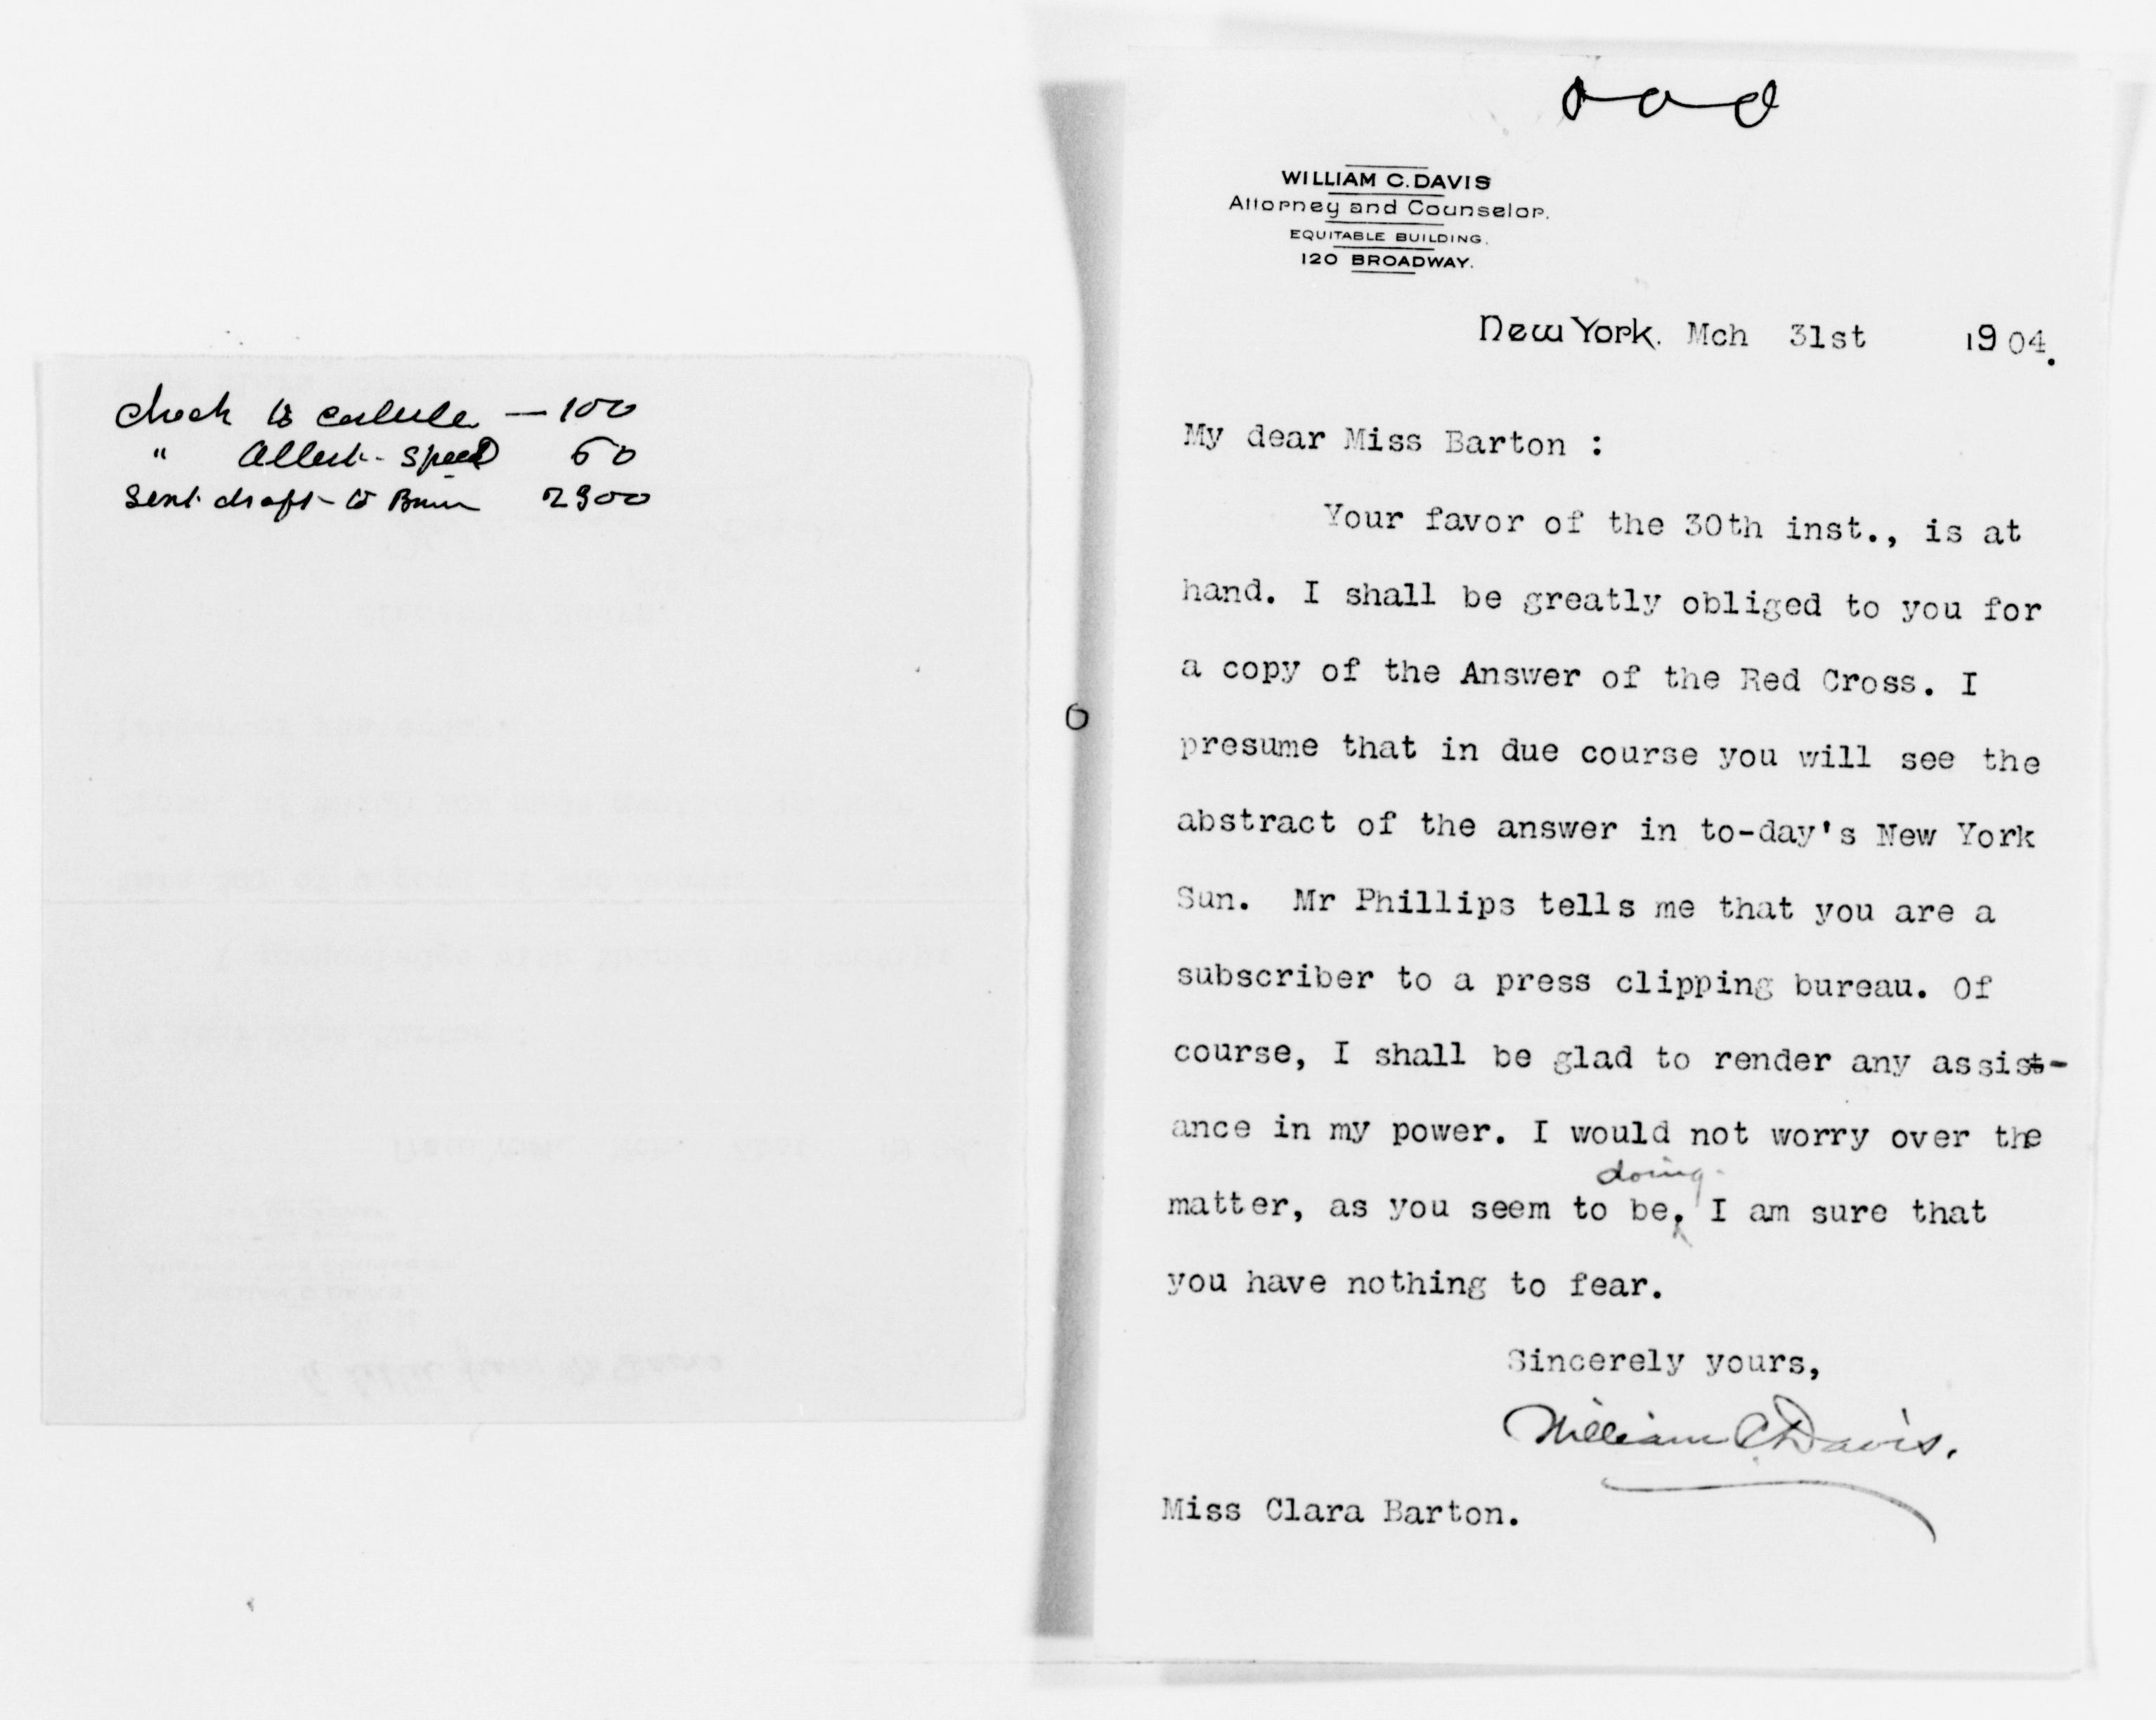 check to Carlisle — 100
" Albert - Speed 50
Sent draft to 2900
WILLIAM C. DAVIS
Attorney and Counselor.
EQUITABLE BUILDING.
120 BROADWAY.
New York. Mch 31st 1904.
My dear Miss Barton :
Your favor of the 30th inst., is at
hand. I shall be greatly obliged to you for
a copy of the Answer of the Red Cross. I
presume that in due course you will see the
abstract of the answer in to-day's New York
Sun. Mr Phillips tells me that you are a
subscriber to a press clipping bureau. Of
course, I shall be glad to render any assist-
ance in my power. I would not worry over the
doing
matter, as you seem to be. I am sure that
you have nothing to fear.
Sincerely yours,
William C. Davis.
Miss Clara Barton.